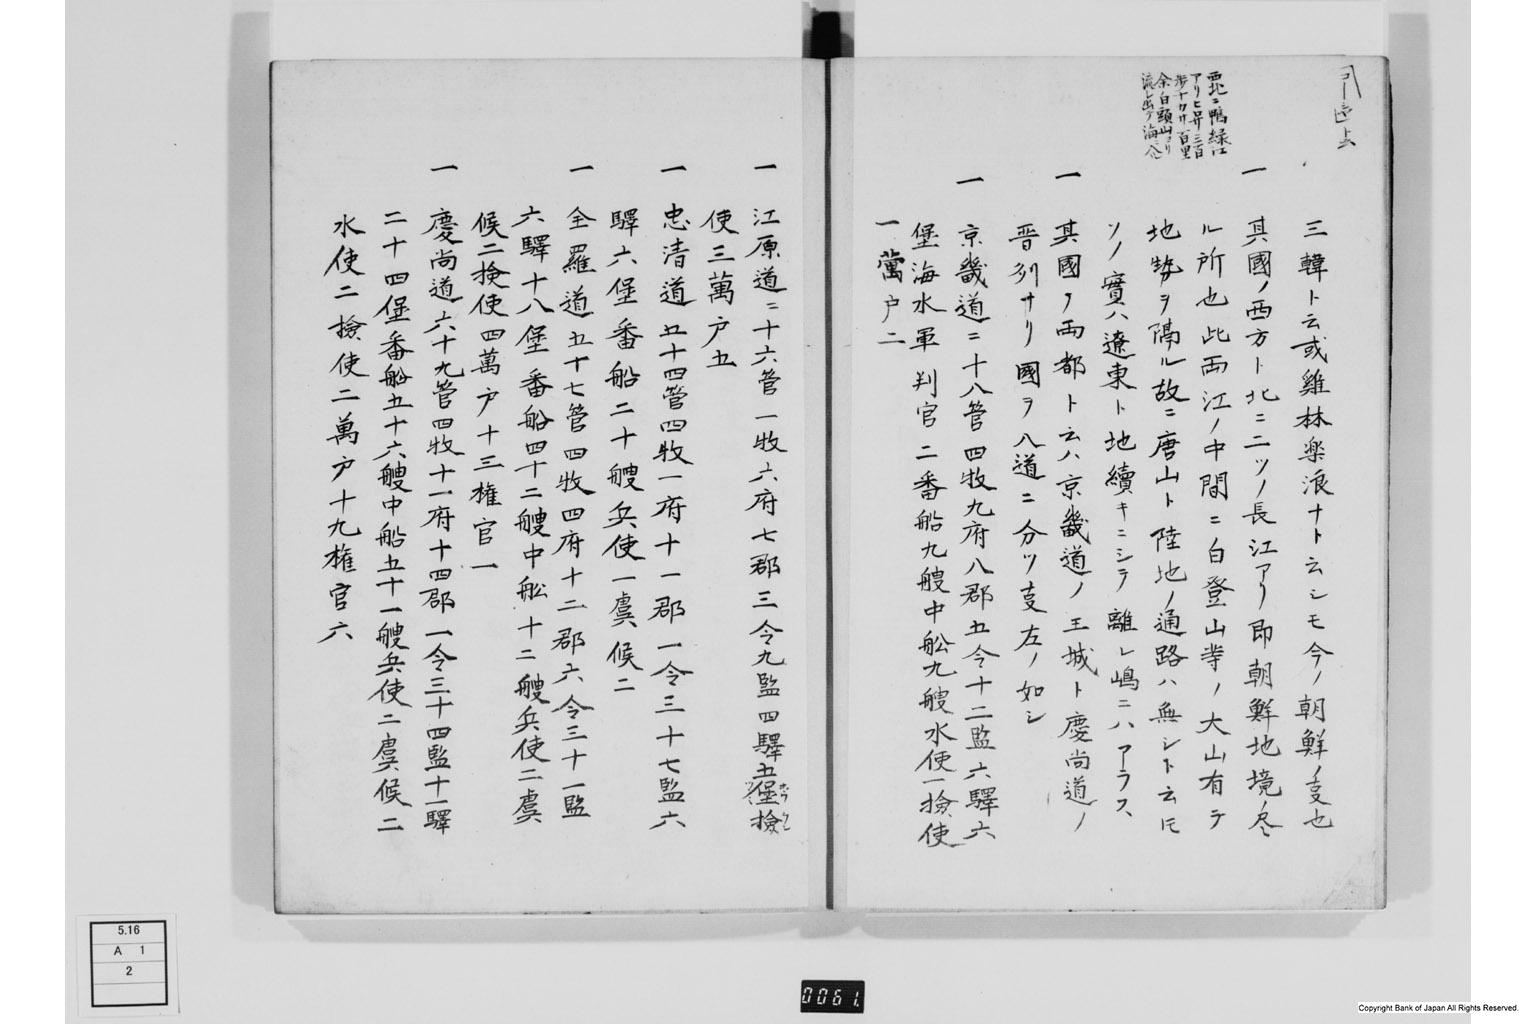 三韓ト云或雞林楽浪ナト云シモ今ノ朝鮮ノ叓也
一 其國ノ西方ト北ニ二ツノ長江アリ即朝鮮地境ノ尽
ル所也此両江ノ中間ニ白登山等ノ大山有テ
地勢ヲ隔ル故ニ唐山ト陸地ノ通路ハ無シト云圧
ソノ實ハ遼東ト地續キニシテ離レ嶋ニハアラス
一 其國ノ両都ト云ハ京畿道ノ王城ト慶尚道ノ
晋列サリ國ヲ八道ニ分ツ叓左ノ如シ
一 京畿道二十八管四牧九府八郡五令十二監六驛六
堡海水軍判官二番船九艘中舩九艘水使一撿使
一萬户二
西北ニ鴨緑江
アリ
余白頭山ヨリ
流レ出テ海ニ
一 江原道二十六管一牧六府七郡三令九監四驛五堡撿
使三萬户五
一 忠清道五十四管四牧一府十一郡一令三十七監六
驛六堡番船二十艘兵使一虞候二
一 全羅道五十七管四牧四府十二郡六令三十一監
六驛十八堡番船四十二艘中舩十二艘兵使二虞
候二撿使四萬户十三權官一
一 慶尚道六十九管四牧十一府十四郡一令三十四監十一驛
二十四堡番船五十六艘中船五十一艘兵使二虞候二
水使二撿使二萬户十九權官六
5.16
A 1
2
0061.
Copyright Bank of Japan All Rights Reserved.